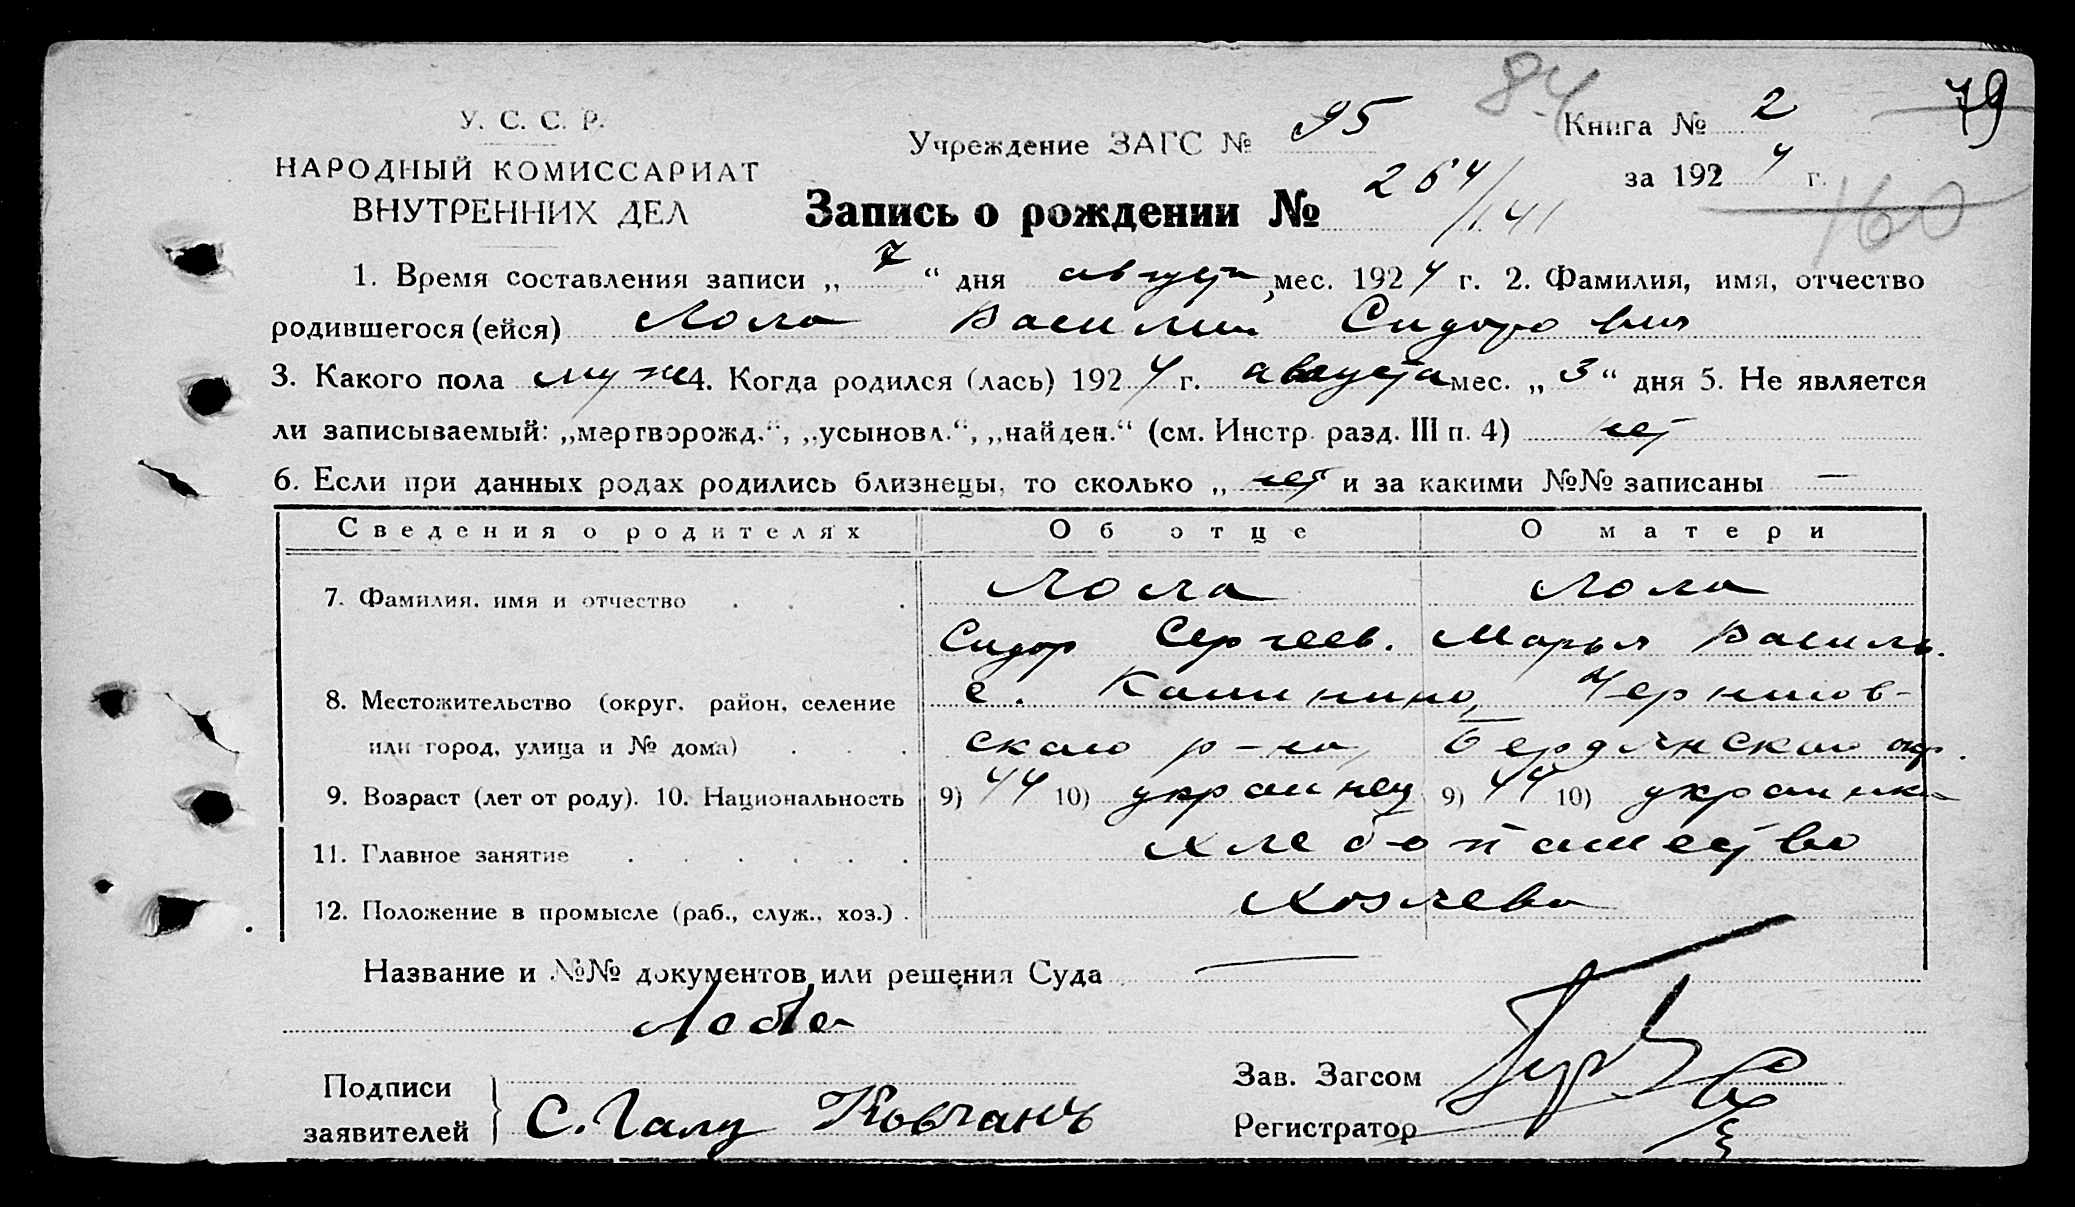 84
79
У. С. С. Р.
НАРОДНЫЙ КОМИССАРИАТ
ВНУТРЕННИХ ДЕЛ
Учреждение ЗАГС № 95
Книга № 2
за 1924 г.
160
Запись о рождении № 264/141
1. Время составления записи „7“ дня августа мес. 1924 г. 2. Фамилия, имя, отчество
родившегося (ейся) Лола Василий Сидорович
3. Какого пола муж 4. Когда родился (лась) 1924 г. августа мес. „3“ дня 5. Не является
ли записываемый: „мертворожд.“, „усыновл.“, „найден.“ (см. Инстр. разд. III п. 4) нет
6. Если при данных родах родились близнецы, то сколько „ нет и за какими №№ записаны —
Сведения о родителях Об отце О матери
7. Фамилия, имя и отчество Лола Лола
Сидор Сергеев. Марья Василь.
8. Местожительство (округ, район, селение с. Чернигов-
или город, улица и № дома) ского р-на, Бердянского окр.
9. Возраст (лет от роду). 10. Национальность 9) 44 10) украинец 9) 44 10) украинка
11. Главное занятие хлебопашество
12. Положение в промысле (раб., служ., хоз.) хозяева
Название и №№ документов или решения Суда —
Подписи
заявителей
С.
Зав. Загсом
Регистратор